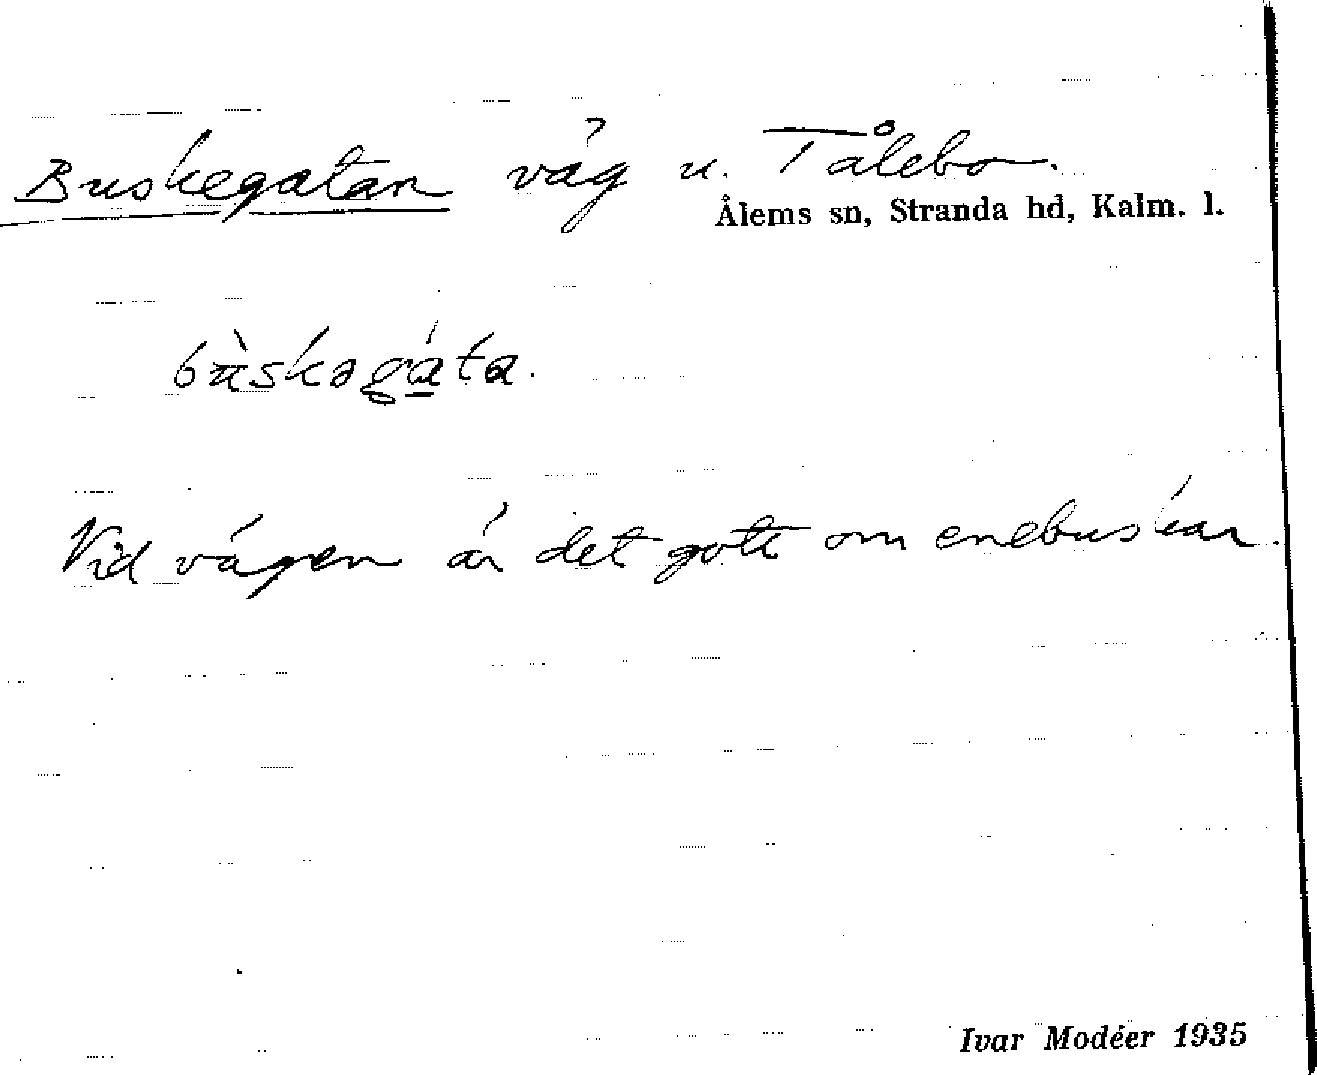 Buskegatan väg u. Tålebo.
Ålems sn, Stranda hd, Kalm. l.
bùskəgáta.
Vid vägen är det gott om enebuskar.
Ivar Modéer 1935